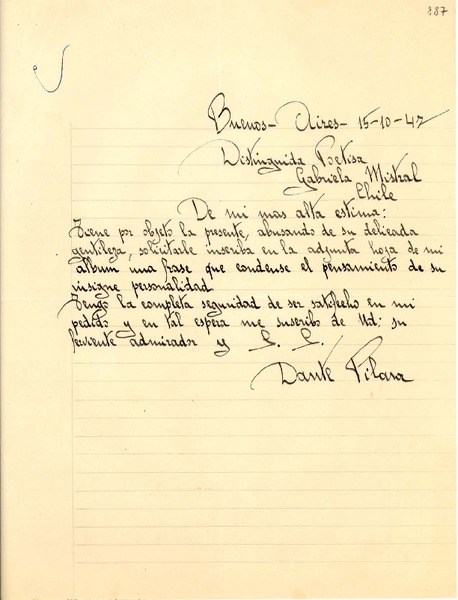 887
Buenos-Aires-15-10-47
Distinguida Poetisa
Gabriela Mistral
Chile
De mi mas alta estima:
Tiene por objeto la presente, abusando de su delicada
gentileza, solicitarle inscriba en la adjunta hoja de mi
álbum una frase que condense el pensamiento de su
insigne personalidad
Tengo la completa seguridad de ser satisfecho en mi
pedido y en tal espera me suscribo de Ud: su
ferviente admirador y S. S.
Dante Pilara